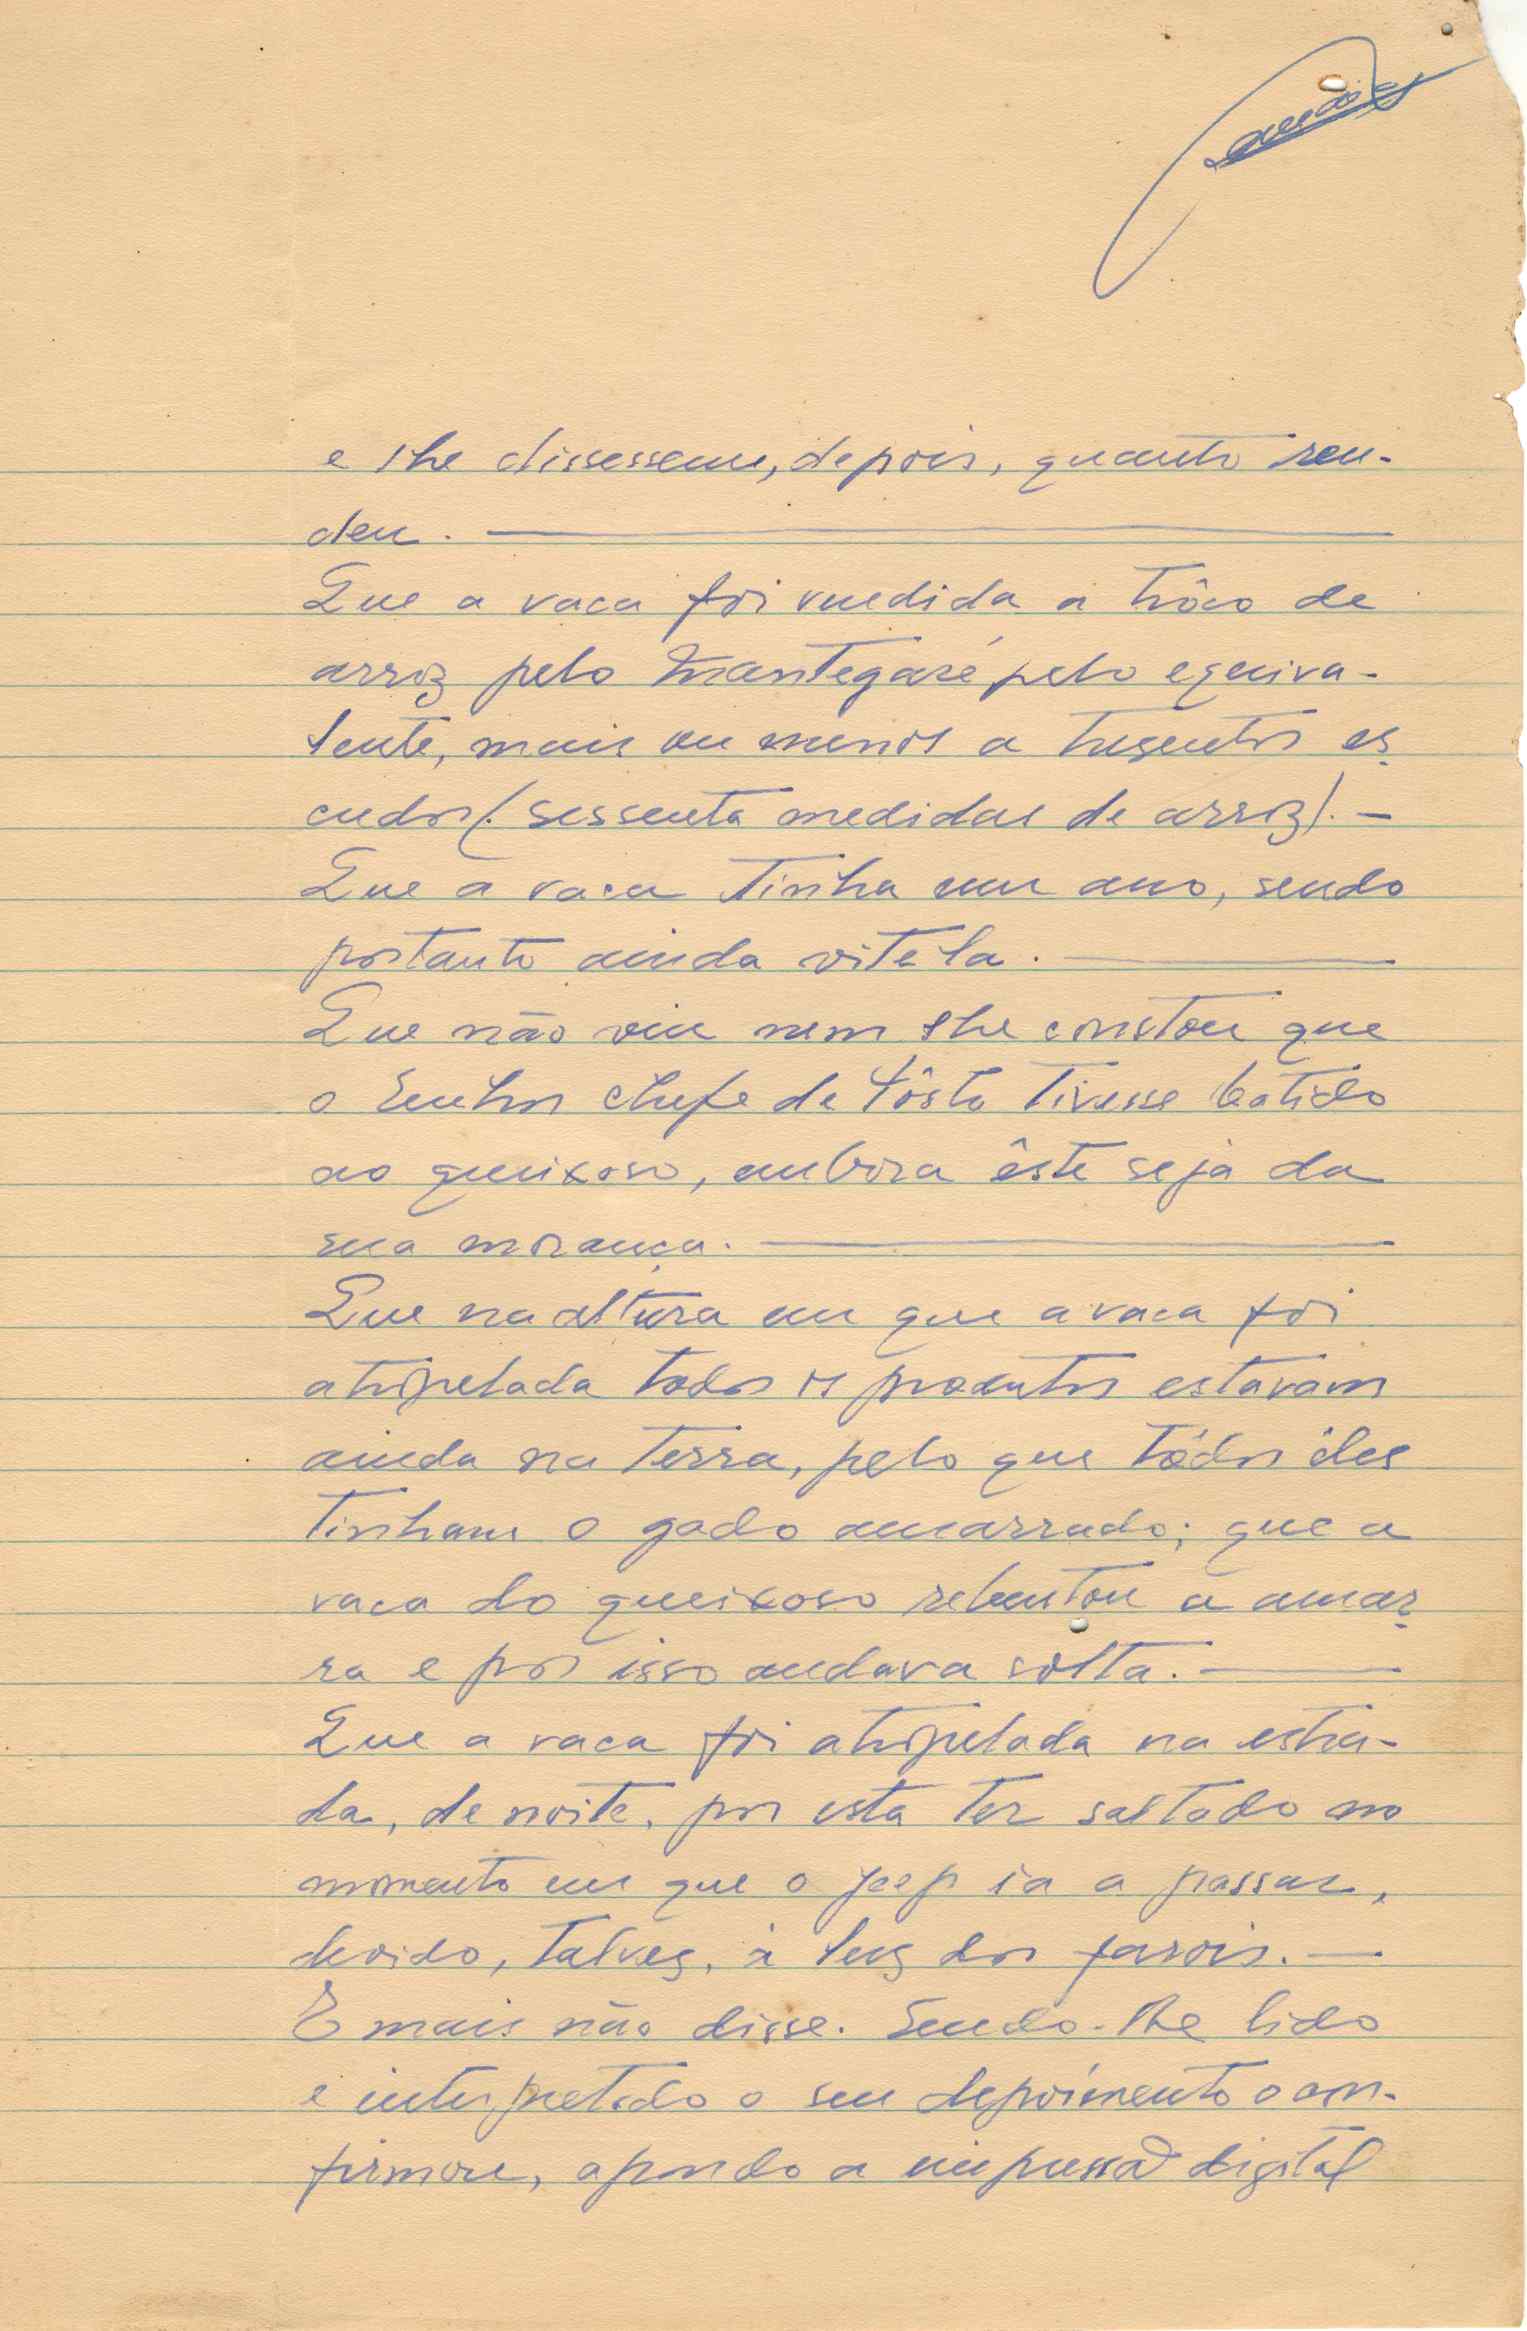 e lhe dissessem, depois, quanto ren-
deu.
Que a vaca foi vendida a trôco de
arroz pelo Mantegaré, pelo equiva-
lente, mais ou menos a tresentos es-
cudos (sessenta medidas de arroz). -
Que a vaca tinha um ano, sendo
portanto ainda vitela.
Que não viu nem lhe constou que
o Senhor Chefe de Pôsto tivesse batido
ao queixoso, embora êste seja da
sua morança.
Que na altura em que a vaca foi
atropelada todos os produtos estavam
ainda na terra, pelo que tôdos êles
tinham o gado amarrado; que a
vaca do queixoso rebentou a amar-
ra e por isso andava solta.
Que a vaca foi atropelada na estra-
da, de noite, por esta ter saltado no
momento em que o jeep ia a passar,
devido, talvez, à luz dos farois. -
E mais não disse. Sendo-lhe lido
e interpretado o seu depoimento o con-
firmou, apondo a impressão digital